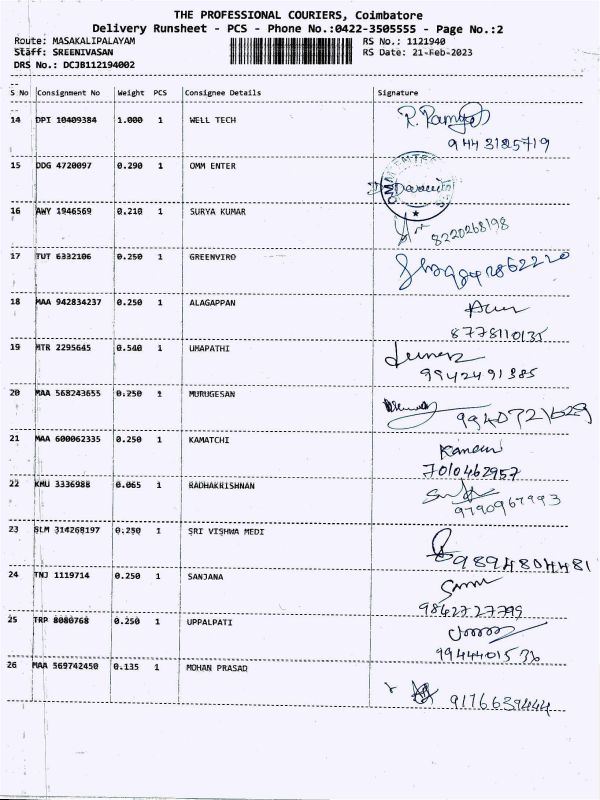 THE PROFESSIONAL COURIERS, Coimbatore
Delivery Runsheet - PCS - Phone No.:0422-3505555 - Page No.:2
Route: MASAKALIPALAYAM
Staff: SREENIVASAN
DRS No.: DCJB112194002
RS No.: 1121940
RS Date: 21-Feb-2023
S No Consignment No Weight PCS Consignee Details Signature
14 DPI 10409384 1.000 1 WELL TECH
9443125719
15 DDG 4720097 0.290 1 OMM ENTER
16 AWY 1946569 0.210 1 SURYA KUMAR
8220268198
17 TUT 6332106 0.250 1 GREENVIRO
18 MAA 942834237 0.250 1 ALAGAPPAN
8778110135
19 MTR 2295645 0.540 1 UMAPATHI
9942491385
20 MAA 568243655 0.250 1 MURUGESAN
9940721629
21 MAA 600062335 0.250 1 KAMATCHI
7010462957
22 KMU 3336988 0.065 1 RADHAKRISHNAN
9790967993
23 SLM 314268197 0.250 1 SRI VISHWA MEDI
9894804481
24 TNJ 1119714 0.250 1 SANJANA
9842727799
25 TRP 8080768 0.250 1 UPPALPATI
9944401536
26 MAA 569742450 0.135 1 MOHAN PRASAD
9176639444